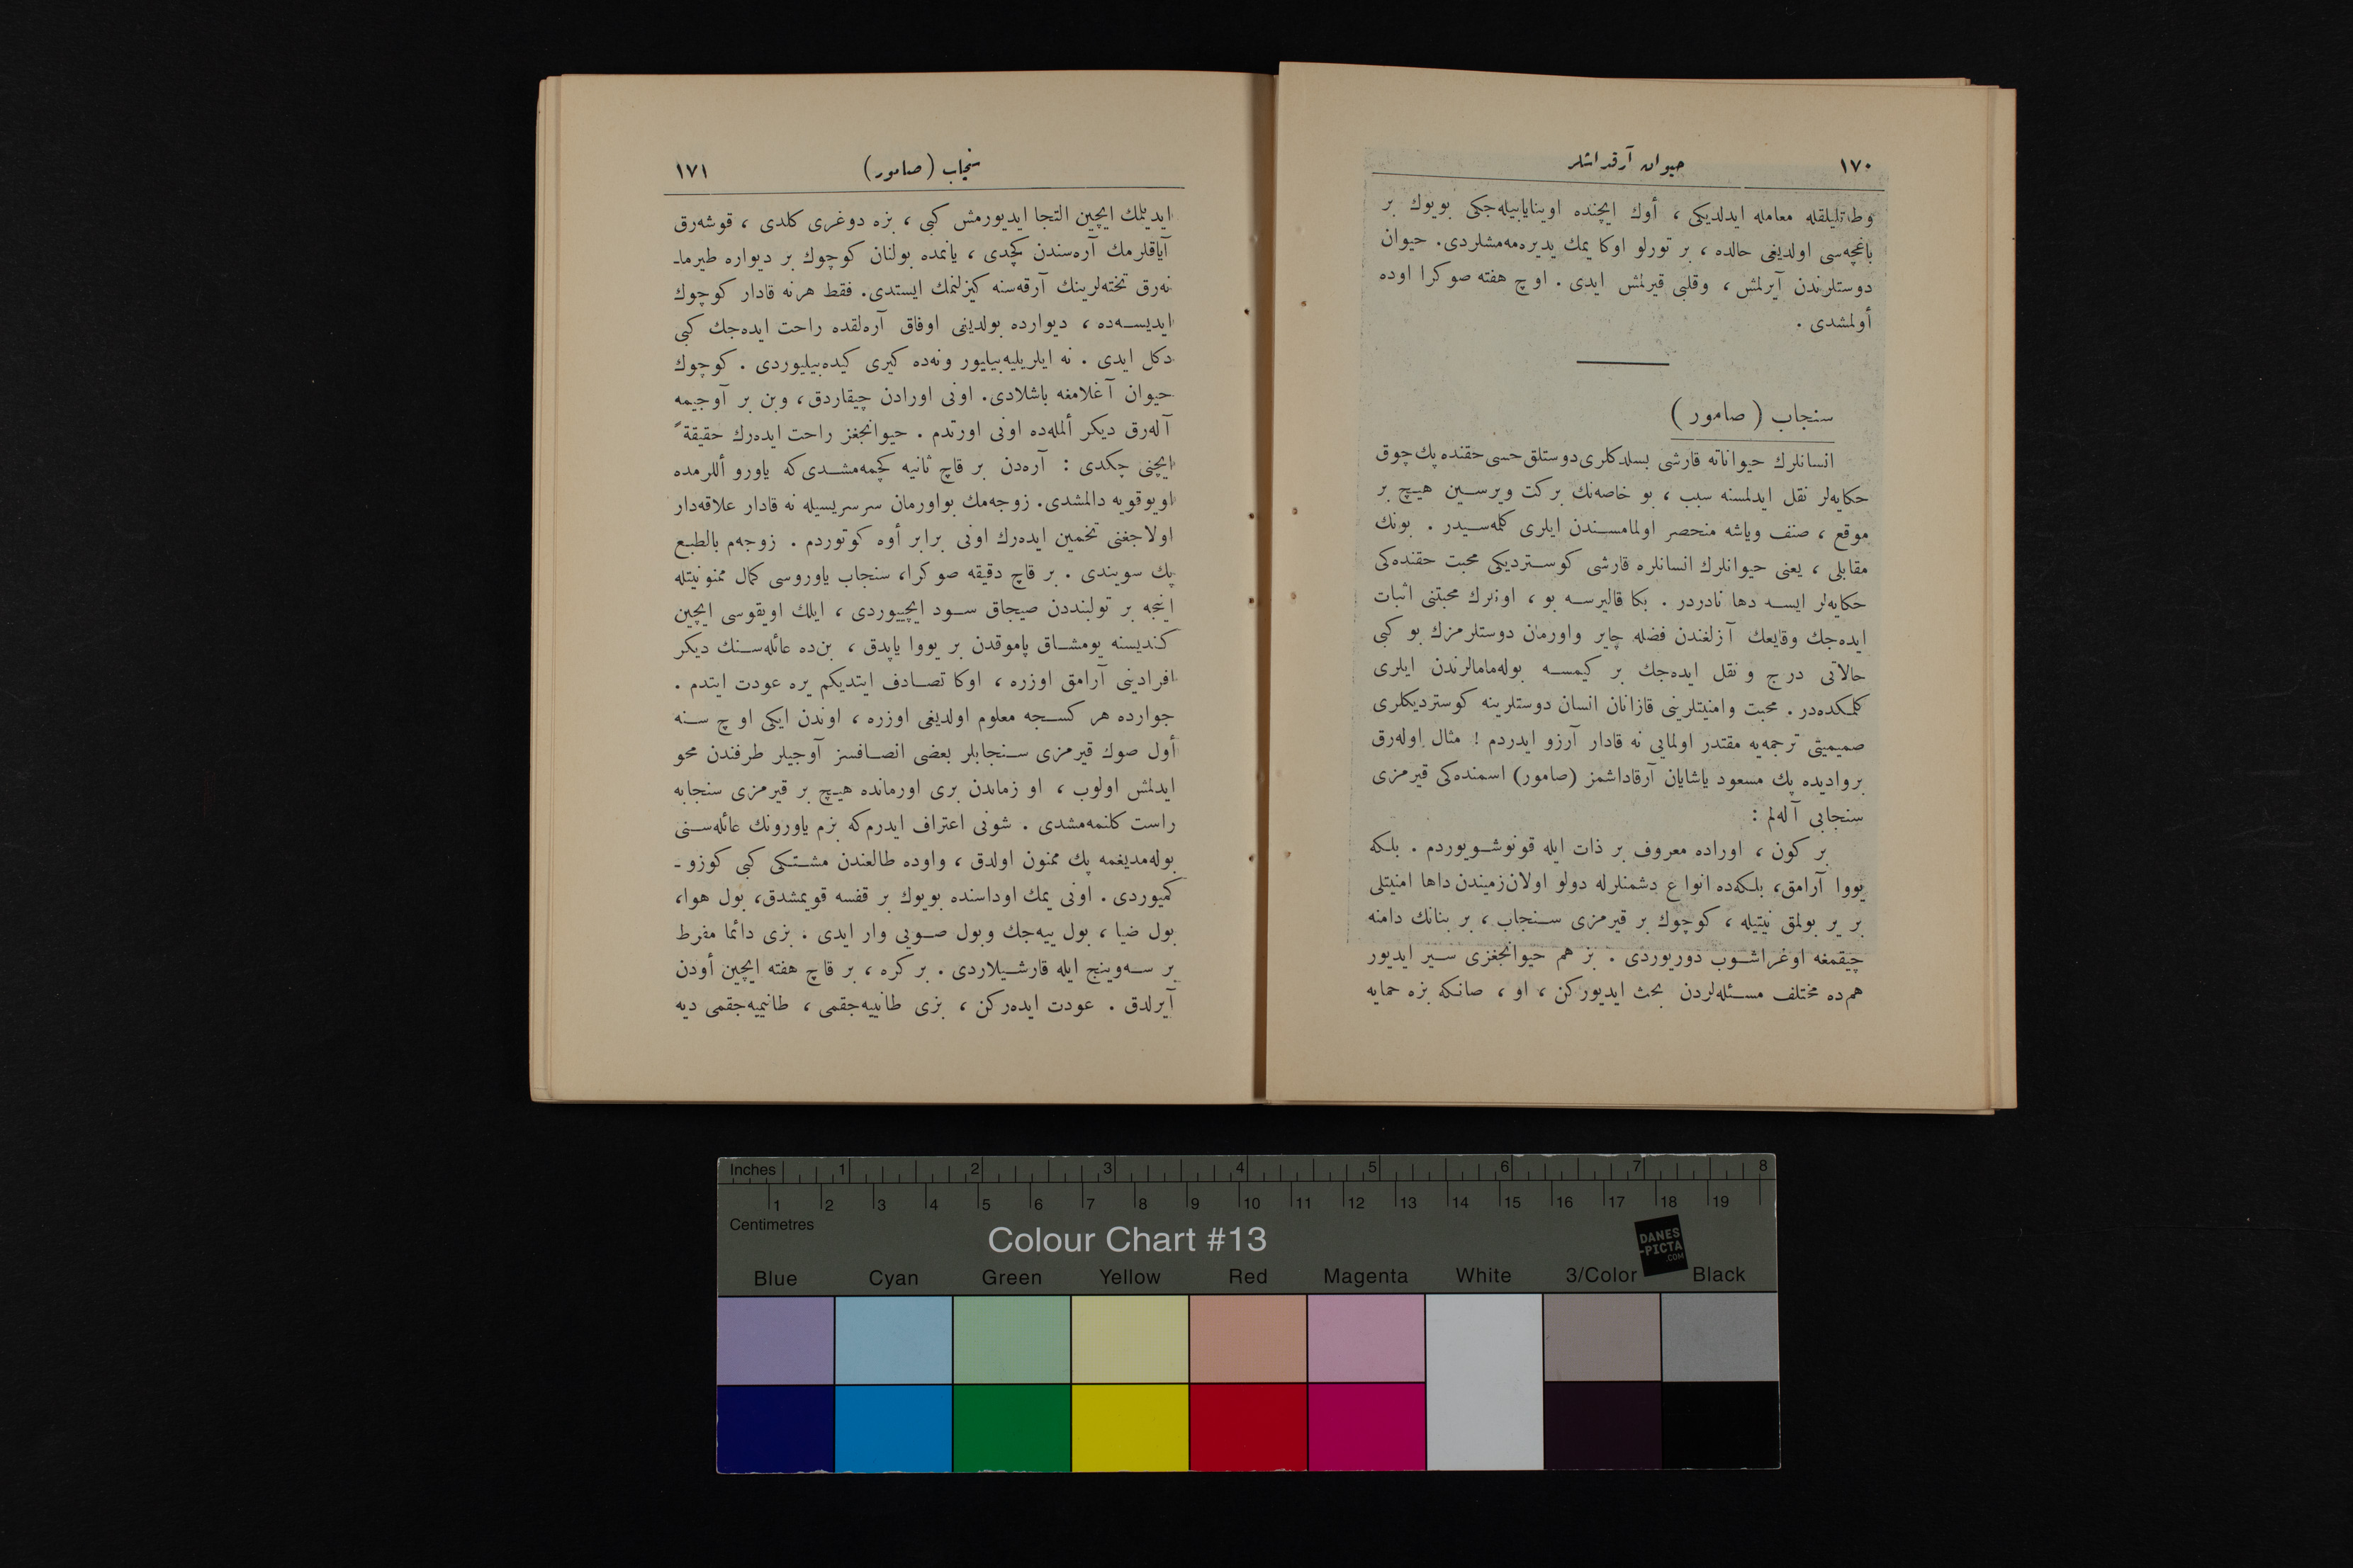 ١٧٠
حيوان آرقداشلر
وطاتليلقله معامله ايدلديكى ، أوك ايچنده اوينايابيله‌جكى بويوك بر
باغچه‌سى اولديغى حالده ، بر تورلو اوكا يمك يديره‌مه‌مشلردى. حيوان
دوستلرندن آيرلمش ، وقلبى قيرلمش ايدى . اوچ هفته صوكرا اوده
أولمشدى .
سنجاب ( صامور )
انسانلرك حيواناته قارشى بسلدكلرى دوستلق حسى حقنده پك چوق
حكايه‌لر نقل ايدلمسنه سبب ، بو خاصه‌نك بركت ويرسين هيچ بر
موقع ، صنف وياشه منحصر اولمامسندن ايلرى كلمه‌سيدر . بونك
مقابلى ، يعنى حيوانلرك انسانلره قارشى كوسترديكى محبت حقنده‌كى
حكايه‌لر ايسه دها نادردر . بكا قاليرسه بو ، اونلرك محبتنى اثبات
ايده‌جك وقايعك آزلغندن فضله چاير واورمان دوستلرمزك بو كبى
حالاتى درج و نقل ايده‌جك بر كيمسه بوله‌مامالرندن ايلرى
كلمكده‌در . محبت وامنيتلرينى قازانان انسان دوستلرينه كوستردكلرى
صميميتى ترجمه‌يه مقتدر اولمايى نه قادار آرزو ايدردم ! مثال اوله‌رق
بروادیده پك مسعود ياشايان آرقاداشمز (صامور) اسمنده‌كى قيرمزى
سنجابى آله‌لم :
بر كون ، اوراده معروف بر ذات ايله قونوشويوردم . بلكه
يووا آرامق، بلكه‌ده انواع دشمنلرله دولو اولان زميندن داها امنيتلى
بر ير بولمق نيتيله ، كوچوك بر قيرمزى سنجاب ، بر بنانك دامنه
چيقمغه اوغراشوب دوريوردى . بز هم حيوانجغزى سير ايديور
هم‌ده مختلف مسئله‌لردن بحث ايديوركن ، او ، صانكه بزه حمايه
سنجاب (صامور)
١٧١
ايديلمك ايچين التجا ايديورمش كبى ، بزه دوغرى كلدى ، قوشه‌رق
آياقلرمك آره‌سندن كچدى ، يانمده بولنان كوچوك بر ديواره طيرماـ
نه‌رق تخته‌لرينك آرقه‌سنه كيزلنمك ايستدى. فقط هرنه قادار كوچوك
ايديسه‌ده ، ديوارده بولديغى اوفاق آره‌لقده راحت ايده‌جك كبى
دكل ايدى . نه ايلريليه‌بيليور ونه‌ده كيرى كيده‌بيليوردى . كوچوك
حيوان آغلامغه باشلادى. اونى اورادن چيقاردق، وبن بر آوجيمه
آله‌رق ديكر ألمله‌ده اونى اورتدم . حيوانجغز راحت ايده‌رك حقيقةً
ايچنى چكدى : آره‌دن بر قاچ ثانيه كچمه‌مشدى‌كه ياورو أللرمده
اويوقويه دالمشدى. زوجه‌مك بواورمان سرسريسيله نه قادار علاقه‌دار
اولاجغنى تخمين ايده‌رك اونى برابر أوه كوتوردم . زوجه‌م بالطبع
پك سويندى . بر قاچ دقيقه صوكرا، سنجاب ياوروسى كمال ممنونيتله
اينجه بر تولبنددن صيجاق سود ايچييوردى ، ايلك اويقوسى ايچين
كنديسنه يومشاق پاموقدن بر يووا ياپدق ، بن‌ده عائله‌سنك ديكر
افرادينى آرامق اوزره ، اوكا تصادف ايتديكم يره عودت ايتدم .
جوارده هر كسجه معلوم اولديغى اوزره ، اوندن ايكى اوچ سنه
أول صوك قيرمزى سنجابلر بعضى انصافسز آوجيلر طرفندن محو
ايدلمش اولوب ، او زماندن برى اورمانده هيچ بر قيرمزى سنجابه
راست كلنمه‌مشدى . شونى اعتراف ايدرم‌كه بزم ياورونك عائله‌سنى
بوله‌مديغمه پك ممنون اولدق ، واوده طالعندن مشتكى كبى كوزوـ
كميوردى . اونى يمك اوداسنده بويوك بر قفسه قويمشدق، بول هوا،
بول ضيا ، بول ييه‌جك وبول صويى وار ايدى . بزى دائما مفرط
بر سه‌وينج ايله قارشيلاردى . بر كره ، بر قاچ هفته ايچين أودن
آيرلدق . عودت ايده‌ركن ، بزى طانييه‌جقمى ، طانيميه‌جقمى ديه
Inches 1 2 3 4 5 6 7 8
1 2 3 4 5 6 7 8 9 10 11 12 13 14 15 16 17 18 19
Centimetres
Colour Chart #13
DANES
-PICTA
.COM
Blue Cyan Green Yellow Red Magenta White 3/Color Black